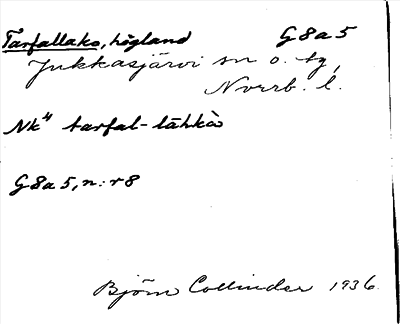 Tarfallako, högland G8a5
Jukkasjärvi sn o. tg,
Nverb. l.
Nk⁴ tarfal-lähkò
G8a5, n:r 8
Björn Collinder 1936